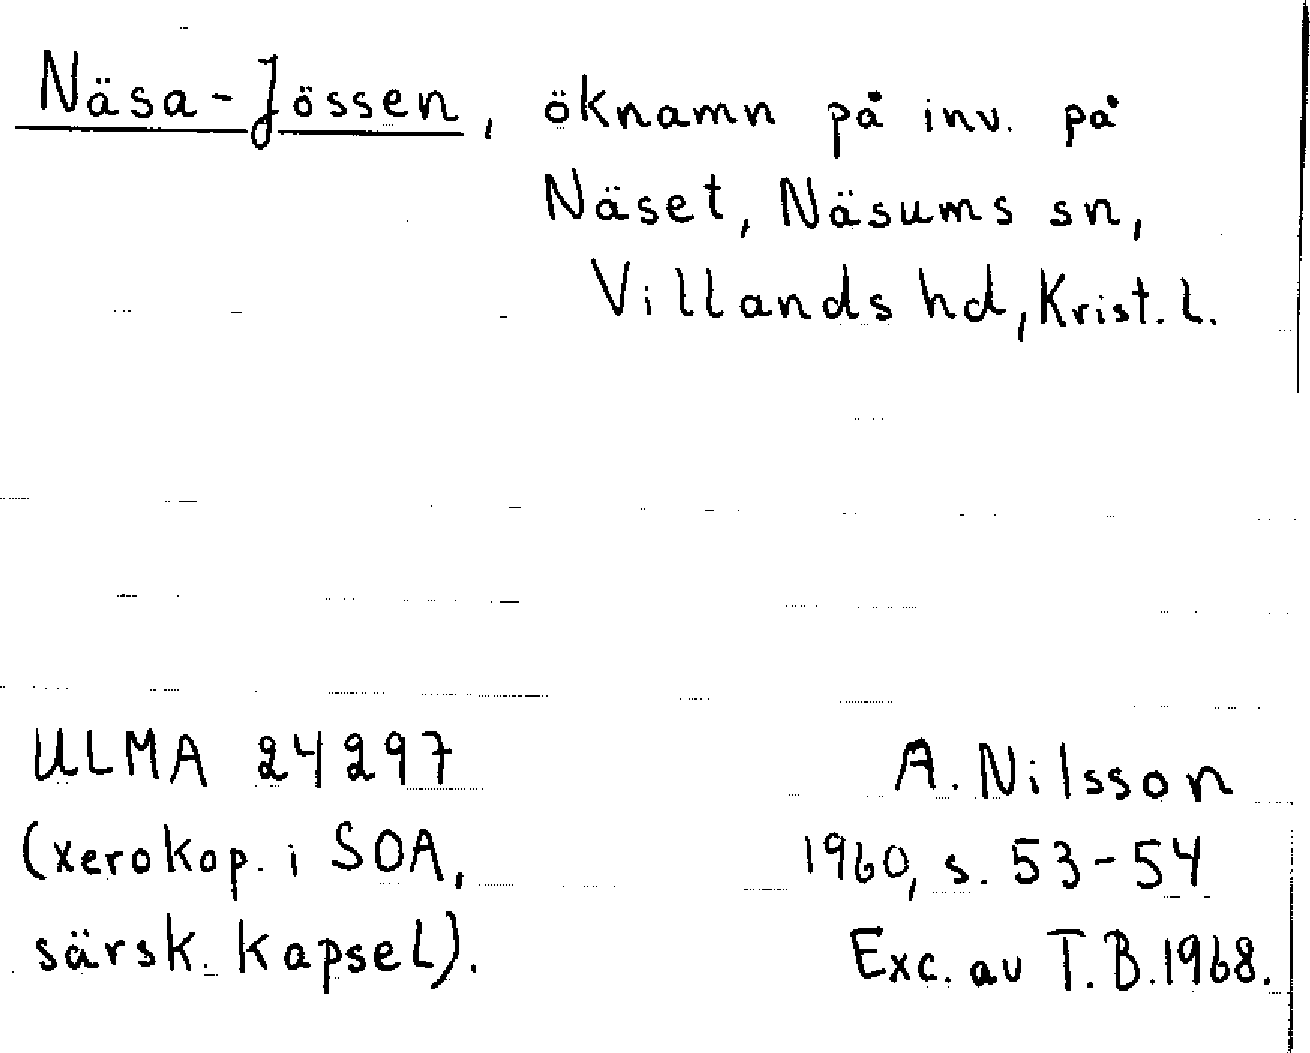 Näsa-Jössen, öknamn på inv. på
Näset, Näsums sn,
Villands hd, Krist. l.
ULMA 24297
(xerokop. i SOA,
särsk. kapsel).
A. Nilsson
1960, s. 53-54
Exc. av T.B. 1968.